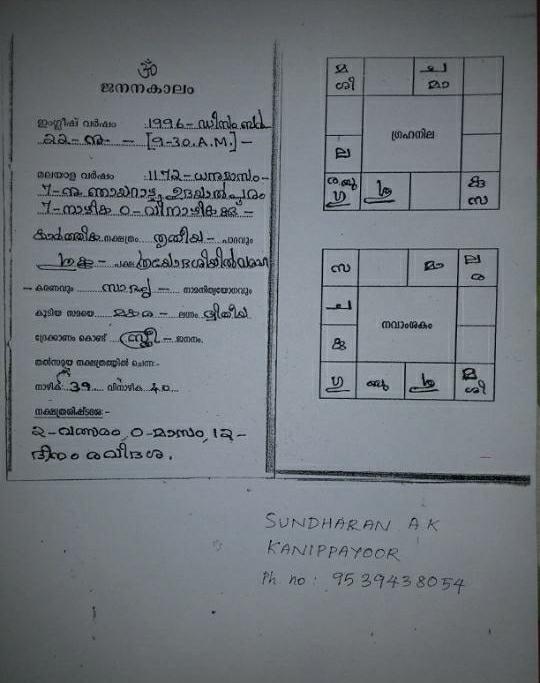 ॐ
ജനനകാലം
ഇംഗ്ലീഷ് വർഷം :1996- ഡിസംബർ
22-നു- - [9-30.A.M]-
മലയാള വർഷം :1172- ധനുമാസം-
7-നു ഞായറാഴ്ച ഉദയാൽപൂരം
7-നാഴിക 0-വിനാഴികക്ക്-
കാർത്തിക നക്ഷത്രം തൃതീയ- പാദവും
ശുക്ല- പക്ഷ ത്രയോദശിയിൽ
കരണവും നാമനിത്യയോഗവും
കൂടിയ സമയെ മകര- ലഗ്നം ദ്വിതീയ
ദ്രേക്കാണം കൊണ്ട് സ്ത്രീ- ജനനം.
തൽസമയ നക്ഷത്രത്തിൽ ചെന്ന:-
നാഴിക 39 വിനാഴിക 40
നക്ഷത്രശിഷ്ടദശ:-
2-വത്സരം, 0-മാസം, 12-
ദിനം രവിദശ.
മ ച
ശി മാ
ഗ്രഹനില
ല
ര ബു ശു കു
ഗു സ
സ മാ ല
ര
ച നവാംശകം
കു
ഗു ബു ശു മ
ശി
SUNDHARAN A K
KANIPPAYOOR
Ph. no : 9539438054